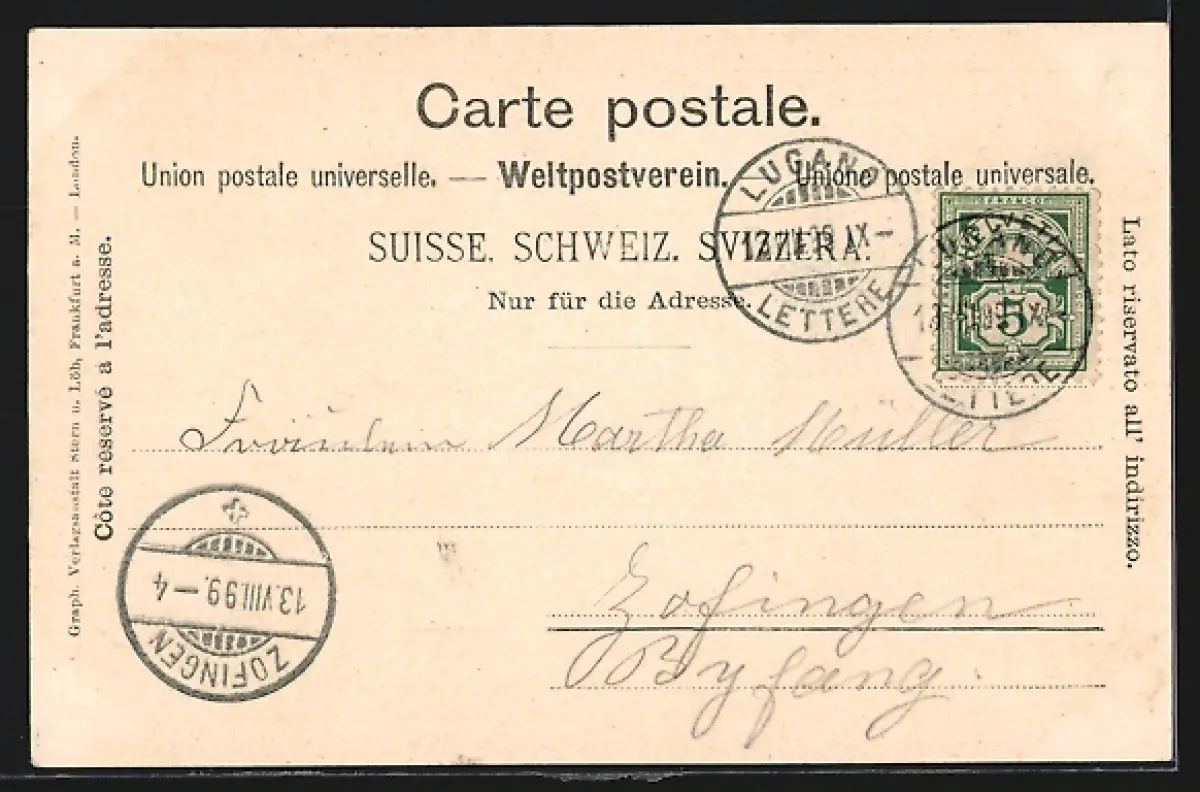 Carte postale.
Union postale universelle. — Weltpostverein. Unione postale universale.
SUISSE. SCHWEIZ. SVIZZERA.
Nur für die Adresse.
LUGANO
LETTERE
FRANCO
HELVETIA
5
LETTERE
Fräulein Martha Müller
Zofingen
Byfang.
13.VIII.99.–4
ZOFINGEN
Côte reservé à l'adresse.
Graph. Verlagsanstalt Stern u. Löb, Frankfurt a. M. — London.
Lato riservato all' indirizzo.